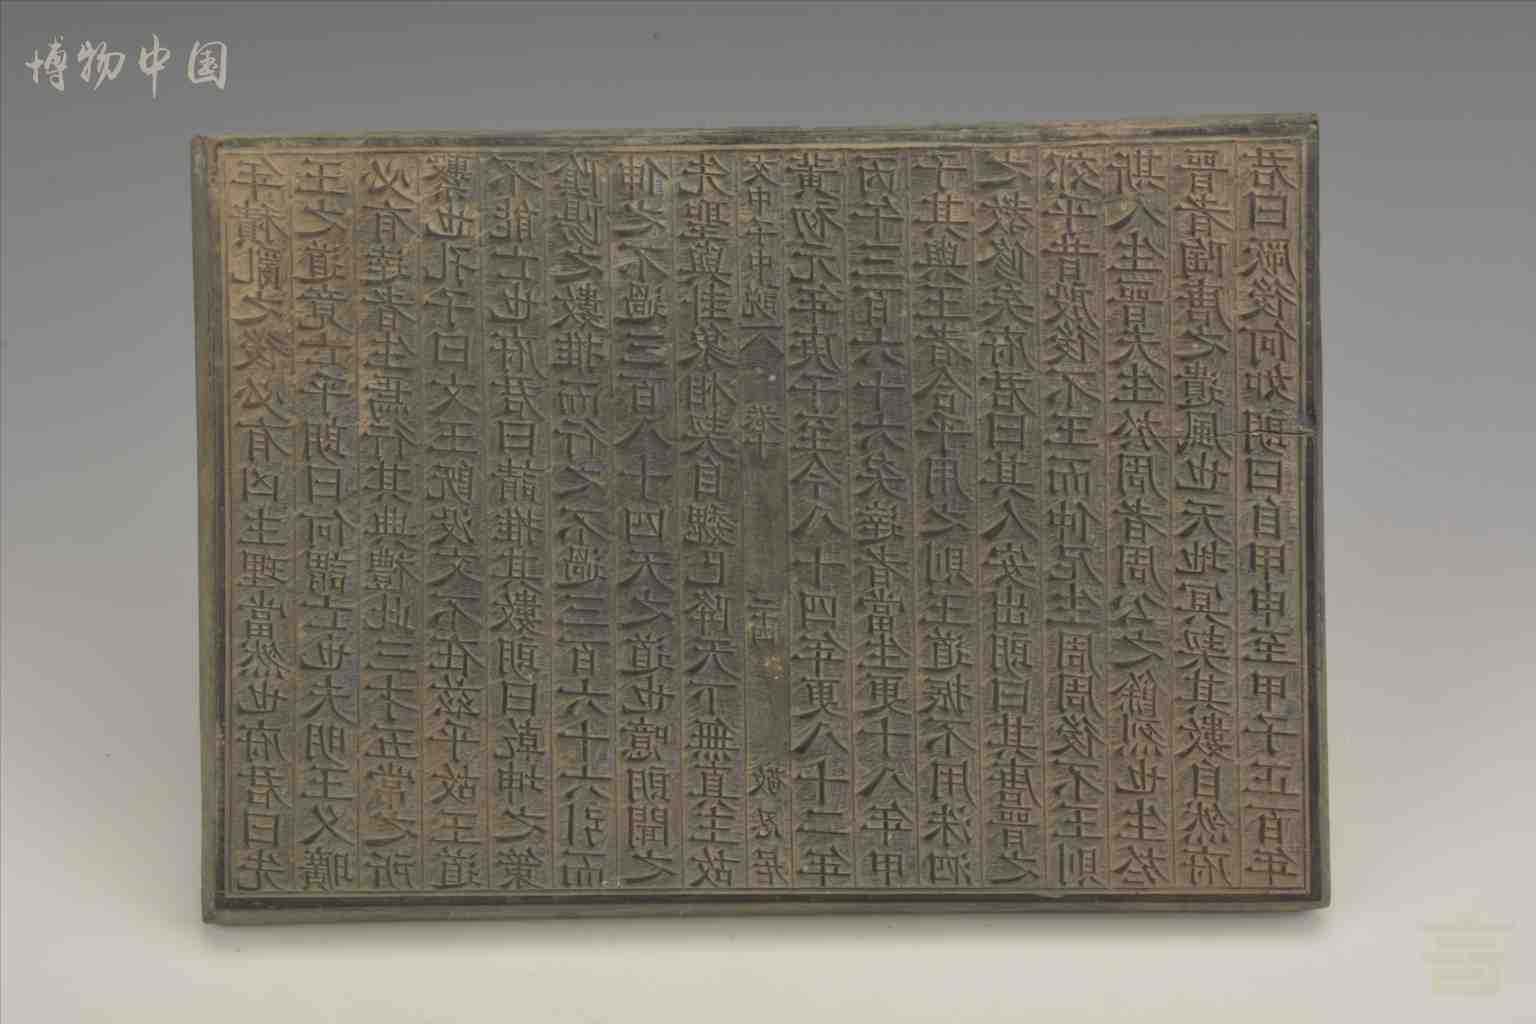 博物中国
年積亂之後必有凶主理當然也府君曰先
王之道竟亡乎朗曰何謂亡也夫明王久曠
必有達者生焉行其典禮此三才五常之所
繫也孔子曰文王既沒文不在茲乎故王道
不能亡也府君曰請推其數朗曰乾坤之策
陰陽之數推而行之不過三百六十六引而
伸之不過三百八十四天之道也噫朗聞之
先聖與卦象相契自魏已降天下無真主故
文中子中說 卷十 二十四 敬忍居
黃初元年庚子至今八十四年更八十二年
丙午三百六十六矣達者當生更十八年甲
子其與王者合乎用之則王道振不用洙泗
之教修矣府君曰其人安出朗曰其唐晋之
郊乎昔殷後不王而仲尼生周周後不王則
斯人生晋夫生於周者周公之餘烈也生於
晋者陶唐之遺風也天地冥契其數自然府
君曰厥後何如朗曰自甲申至甲子正百年